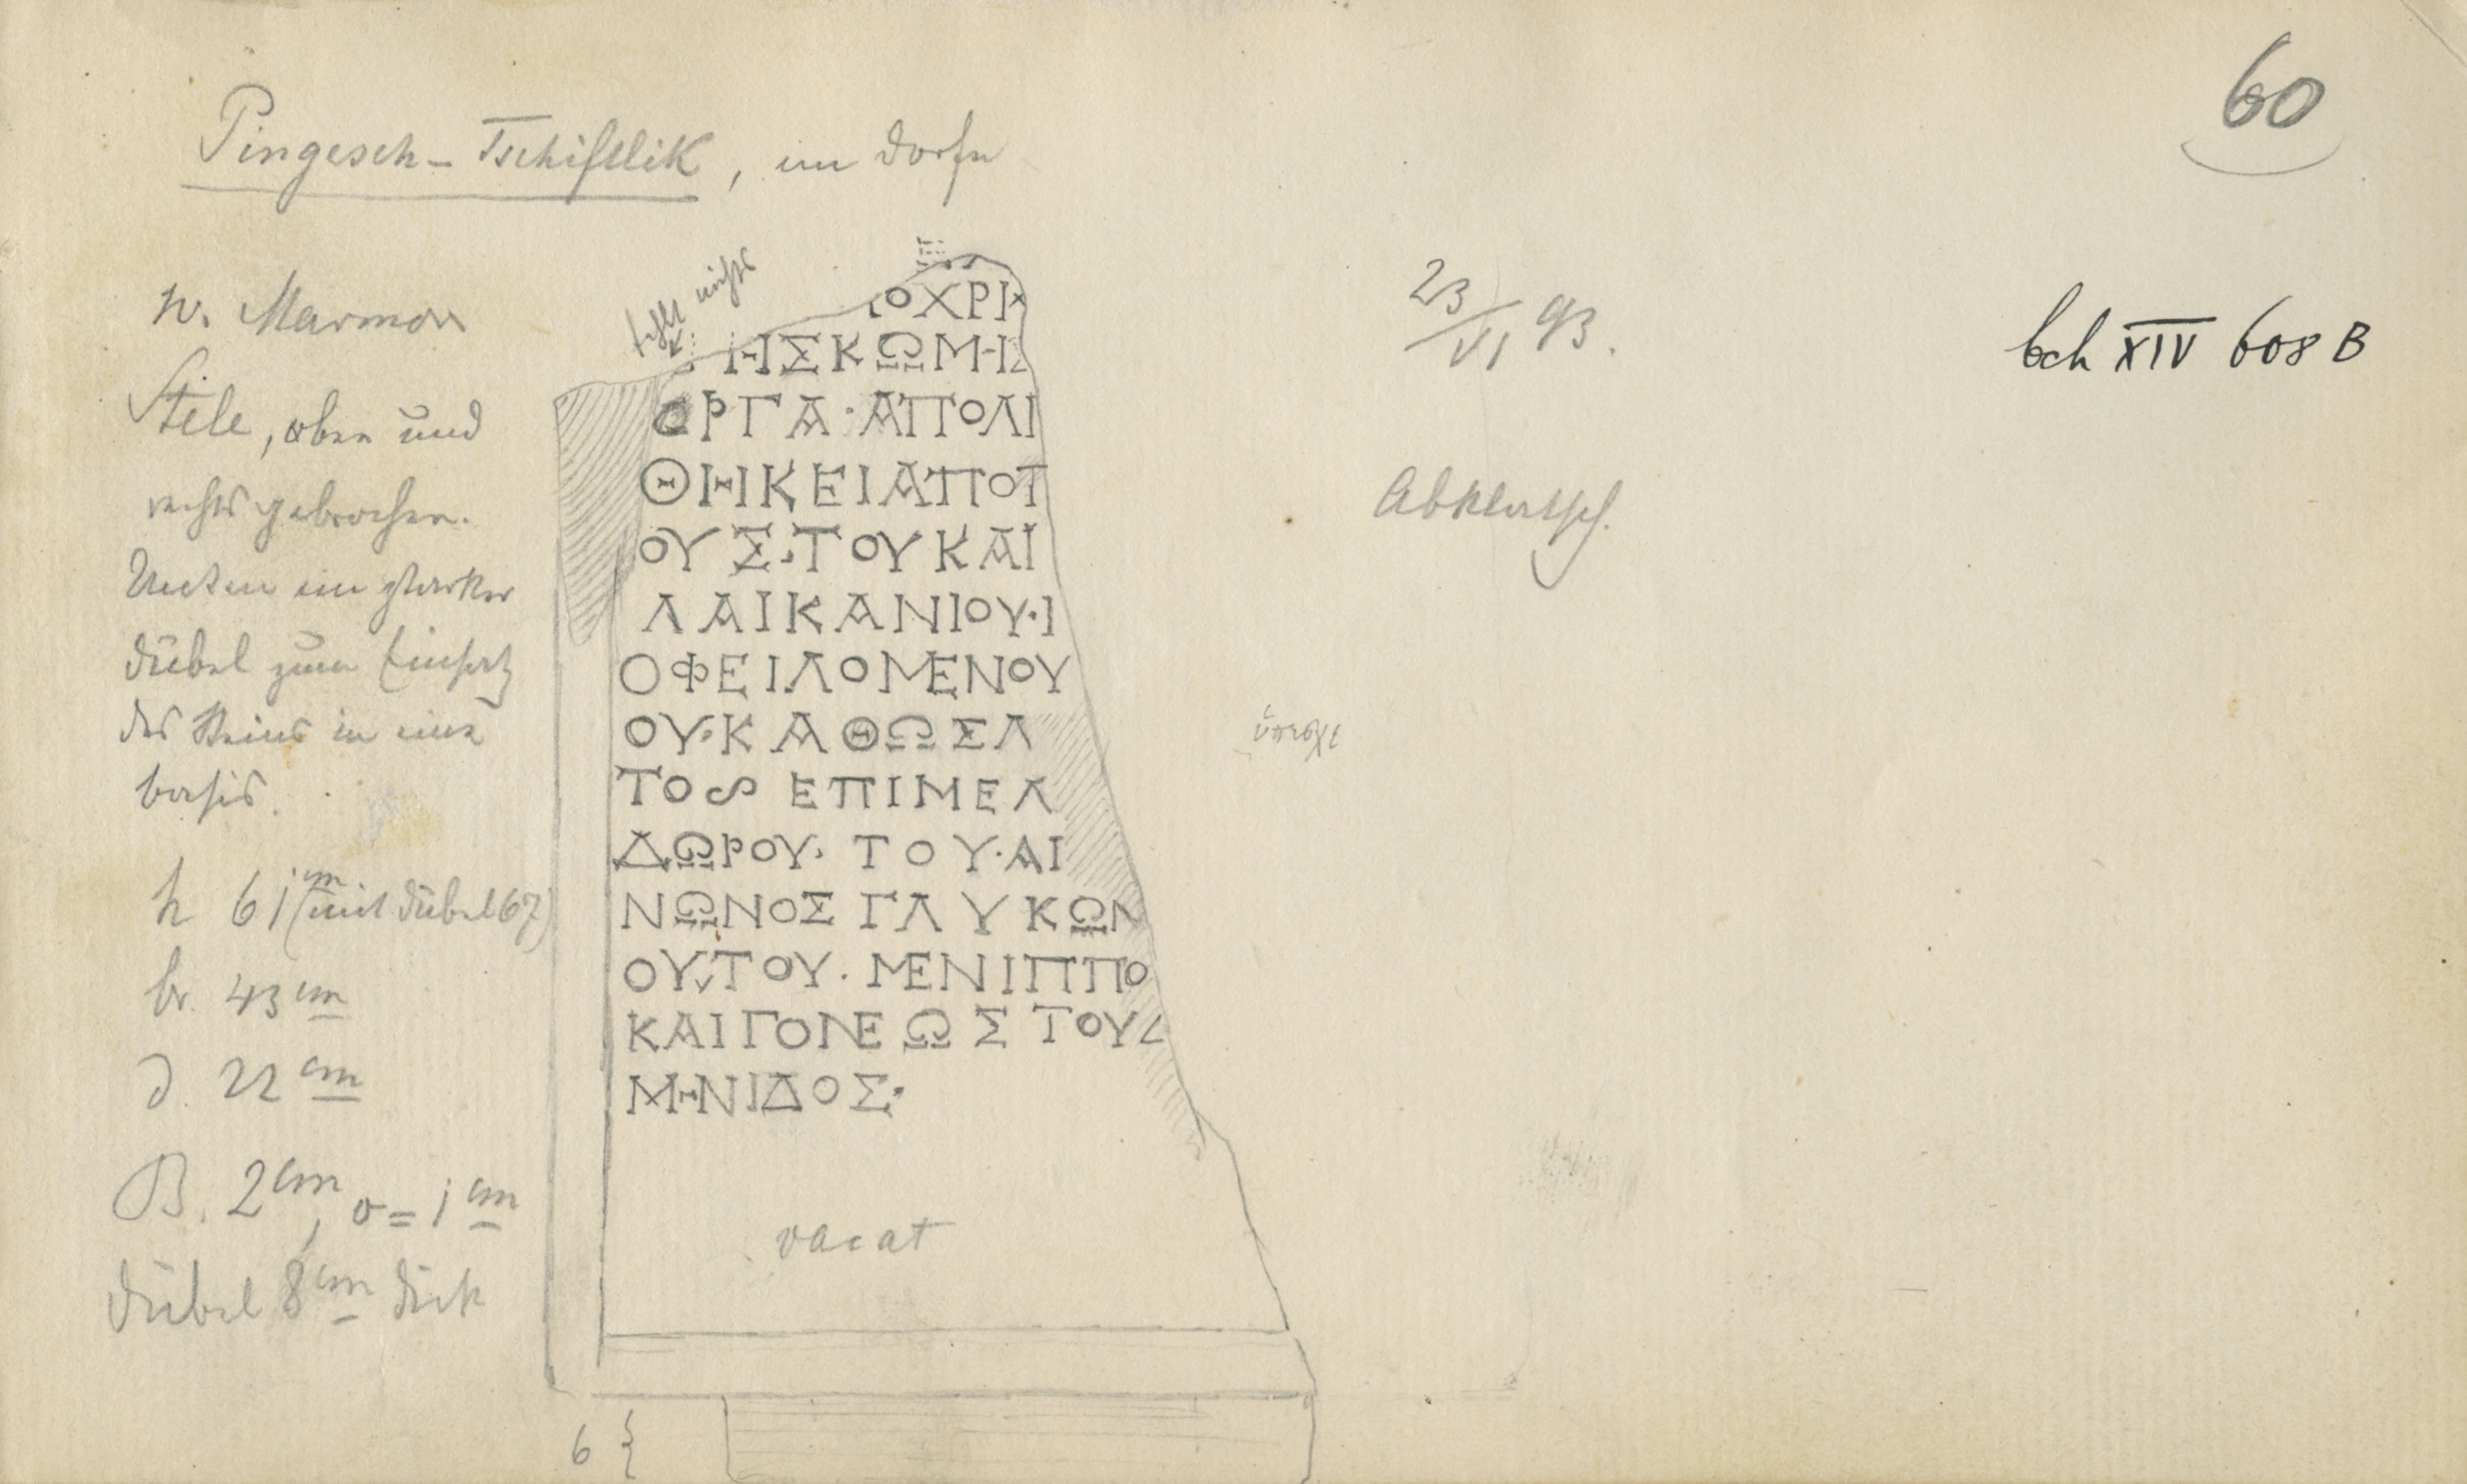 60
Pingesch-Tschiftlik, im Dorfe
W. Marmor
Stele, oben und
rechts gebrochen.
Unten ein starker
Dübel zum Einsatz
des Steins in eine
Basis.
h 61 cm (mit Dübel 67)
br. 43 cm
d. 22 cm
B. 2 cm, o = 1 cm
Dübel 8 cm dick
fehlt nichts
ΟΧΡΙ
ΗΣΚΩΜΗ
ΟΡΓΑ·ΑΠΟΛΙ
ΘΗΚΕΙΑΠΟΤ
ΟΥΣ·ΤΟΥΚΑΙ
ΛΑΙΚΑΝΙΟΥ·Ι
ΟΦΕΙΛΟΜΕΝΟΥ
ΟΥ·ΚΑΘΩΣΛ
ΤΟS ΕΠΙΜΕΛ
ΔΩΡΟΥ· ΤΟΥ·ΑΙ
ΝΩΝΟΣ ΓΛΥΚΩΝ
ΟΥ·ΤΟΥ·ΜΕΝΙΠΠΟ
ΚΑΙΓΟΝΕΩΣ ΤΟΥ
ΜΗΝΙΔΟΣ·
vacat
6
23/VI 93.
Abklatsch.
bch XIV 608 B